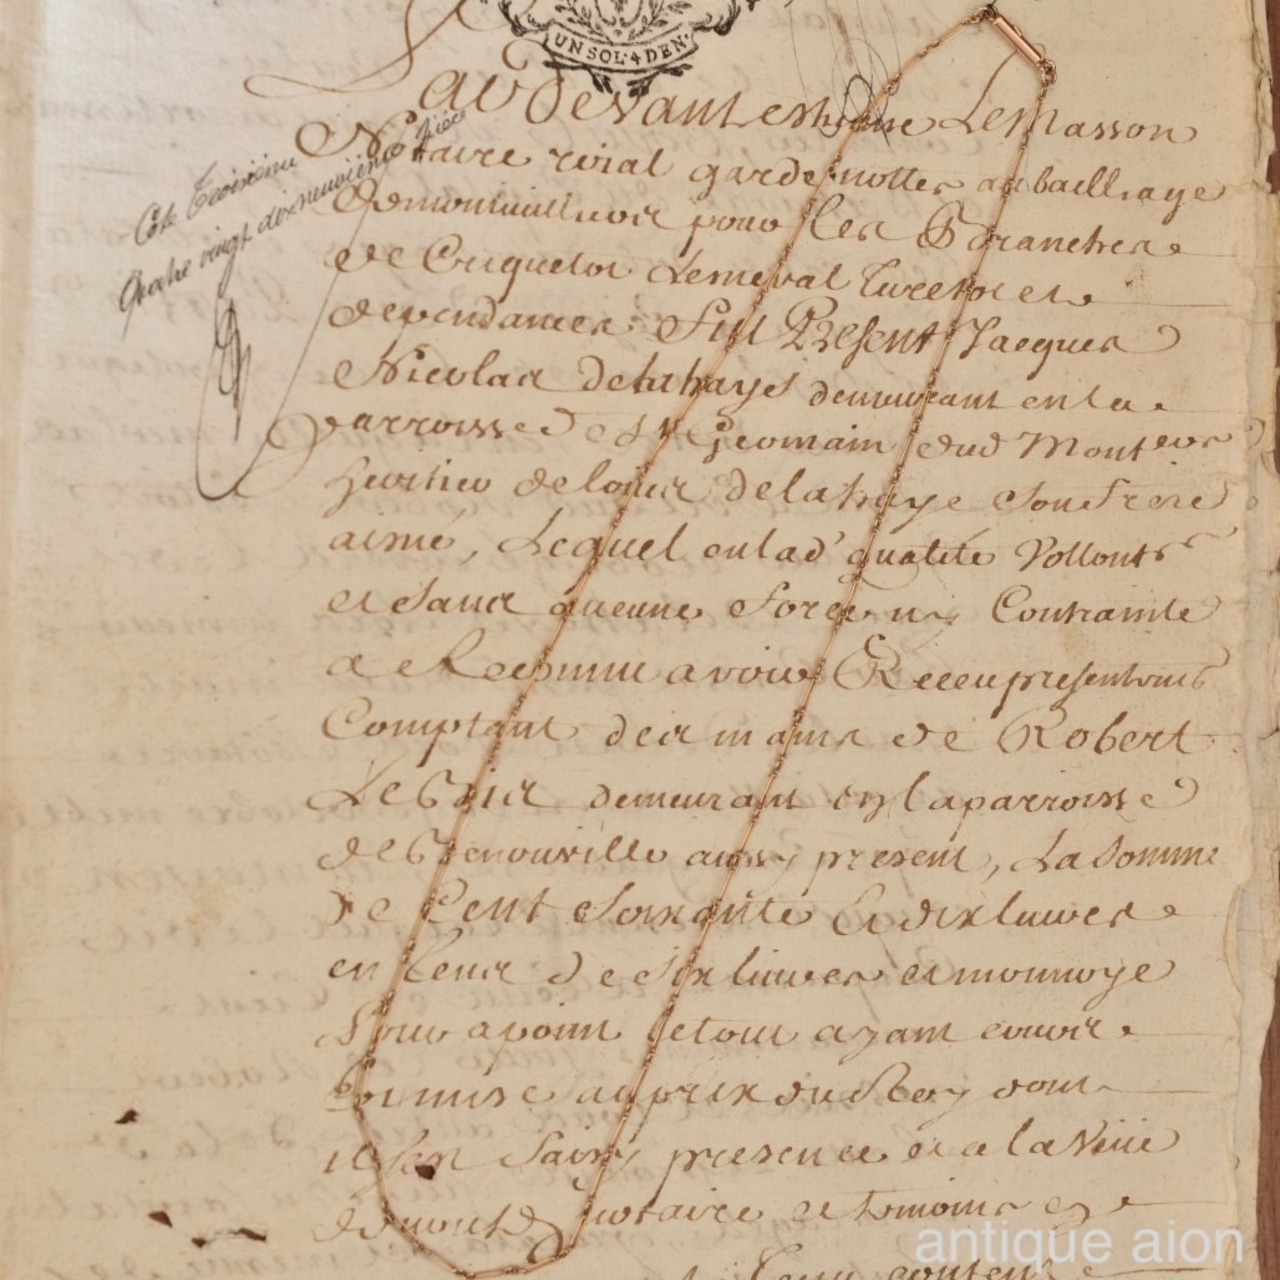 UN SOL 4 DEN.
Pardevant Estienne LeMasson
Notaire roial gardenottes aubailliage
Cote Troisieme piéce
Quatre vingt dix neuvième
Demontiuillier pour les Branches
de Criquetot Lesneval Turetot et
dependances Fut Present Jacques
Nicolas delahayes demeurant en la
parroisse De St Germain dud Montevor
heritier delouis delahaye Son frere
aisné, Lequel enlad' qualité Vollontr
et Sans aucune Force ny Contrainte
a Reconnu avoir Receu presentemt
Comptant des mains de Robert
demeurant en laparroisse
de Benouville aussy present, La Somme
De Cent Soixante Et dix livres
en Ecus De Six livres et monnoye
Pour apoint letout ayant cours
et mise auprix du Roy dont
il Sen Saisy presence et a la Veüe
dud notaire et temoins
antique aion